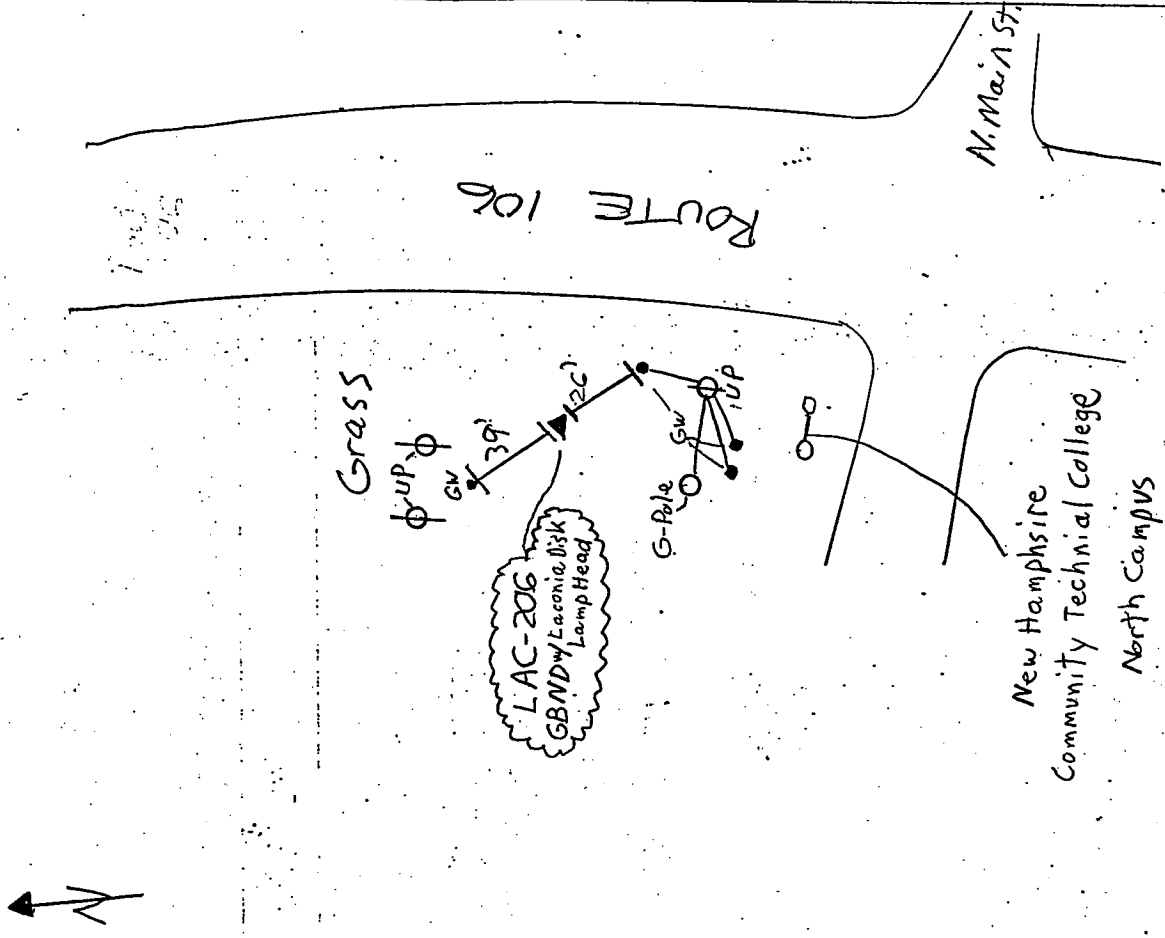 N. Main St.
ROUTE 106
Grass
UP
GW
39'
26'
LAC-206
GBND w/ Laconia Disk
Lamp Head
GW
UP
G-Pole
New Hamphsire
Community Technial College
North Campus
N